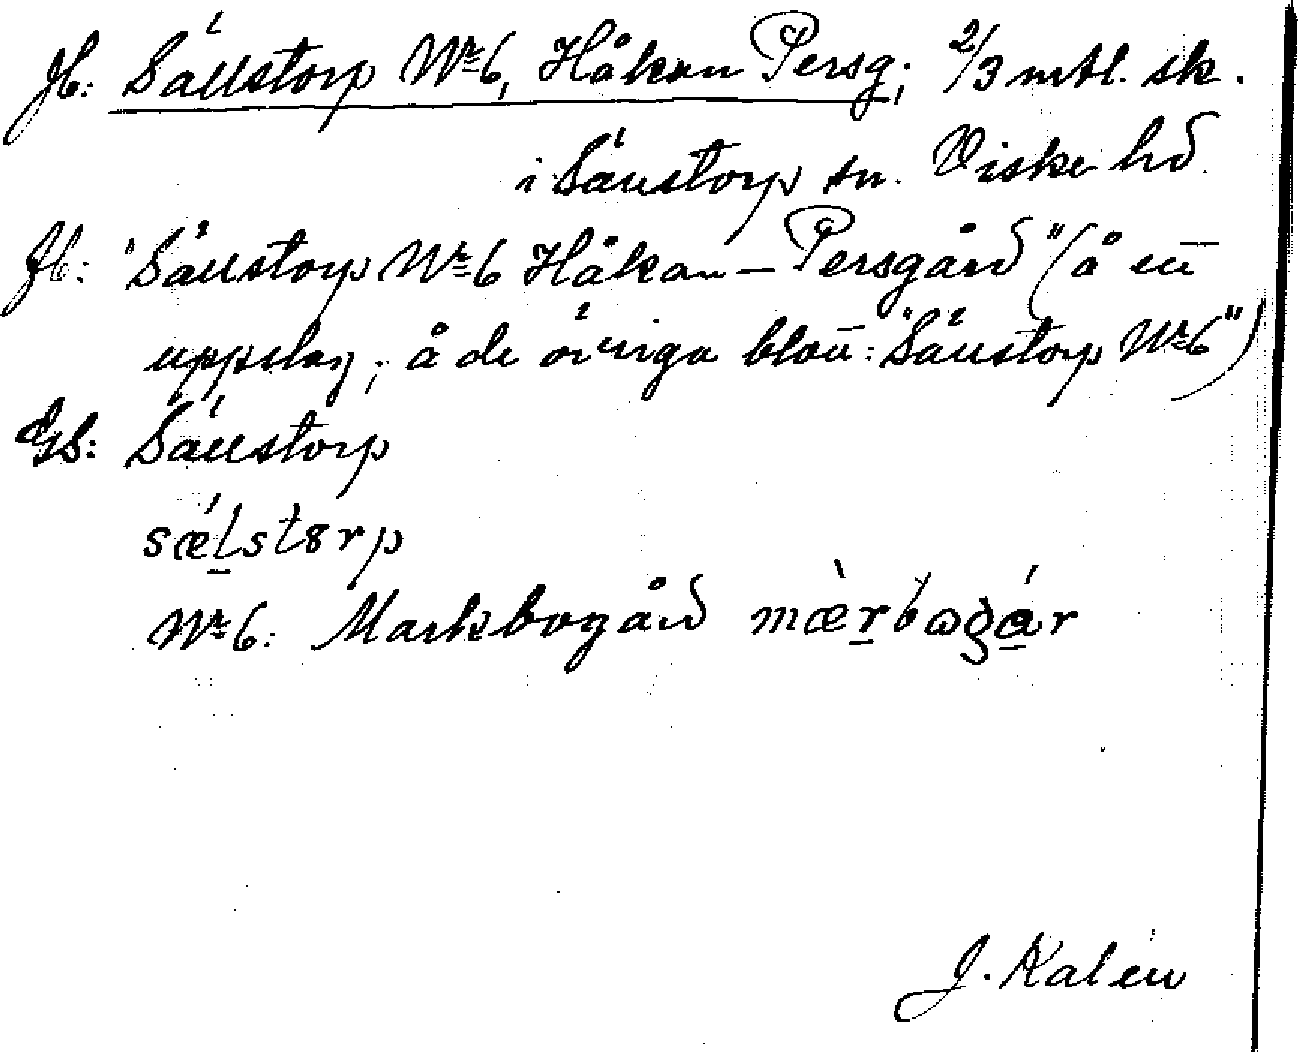 Jb: Sällstorp Nr 6, Håkan Persg; 2/3 mtl. sk.
i Sällstorp sn. Viske hd.
Jb: "Sällstorp Nr 6 Håkan-Persgård" (å ett
uppslag; å de övriga blott: "Sällstorp Nr 6")
GS: Sällstorp
sǽḻstɤrp
Nr 6: Markbogård mæ̀ṟbωgár
J. Kalén